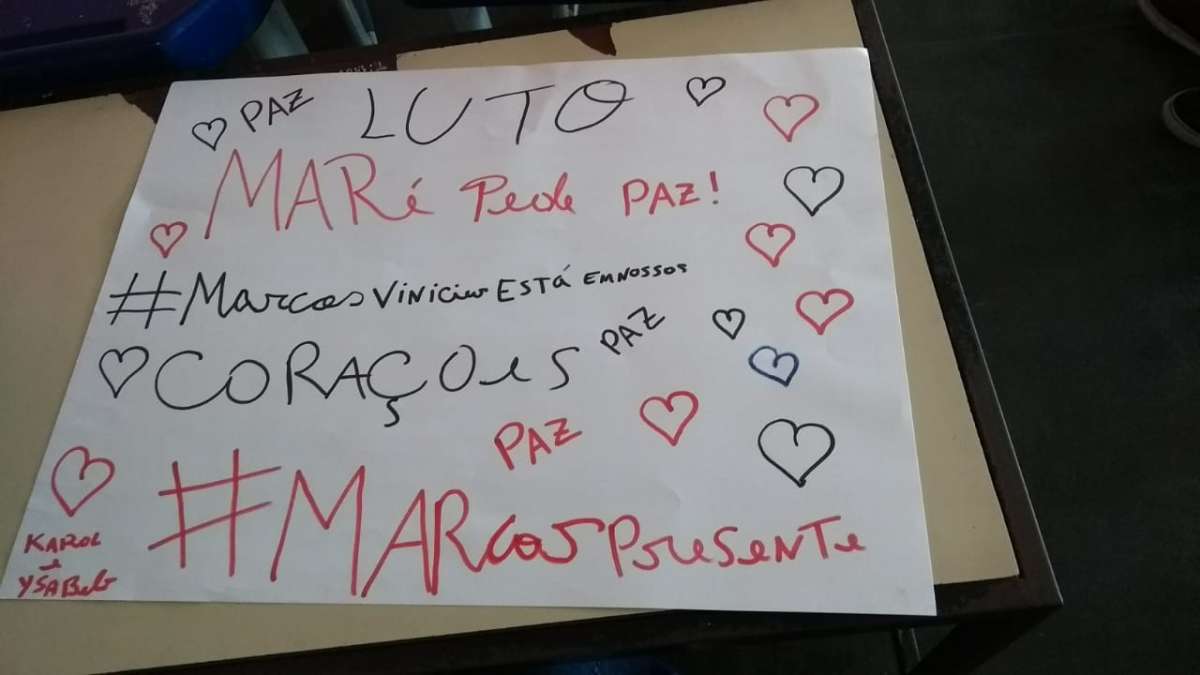 PAZ LUTO
MARé Pede PAZ!
#MarcosViniciusEstá EmNOSSOS
CORAÇOes PAZ
PAZ
#MARcosPresenTe
KAROL
e
YSABele